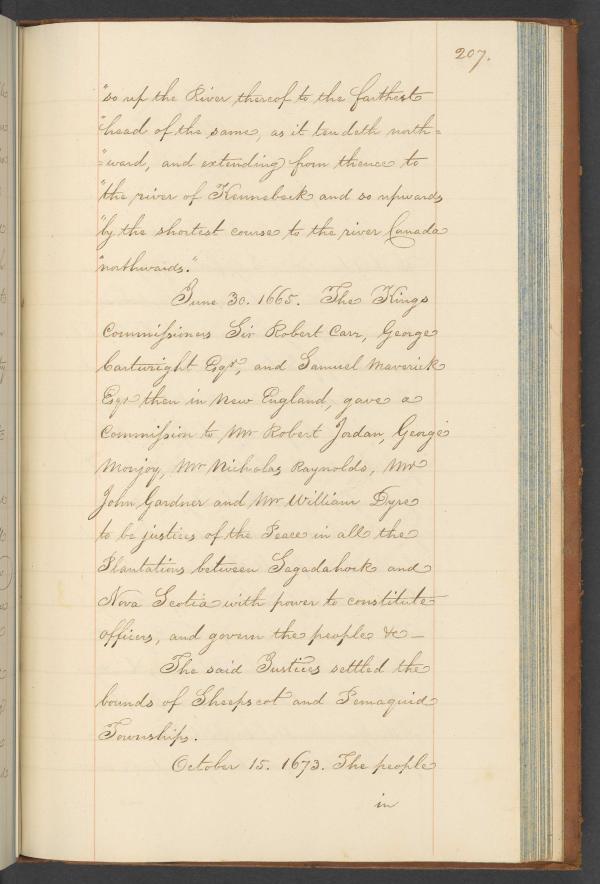 207.
"so up the River thereof to the farthest
"head of the same, as it tendeth north=
"=ward, and extending from thence to
"the river of Kennebeck and so upwards
"by the shortest course to the river Canada
"northwards."
June 30. 1665. The Kings
Commissioners Sir Robert Carr, George
Cartwright Esqr, and Samuel Maverick
Esqr then in New England, gave a
Commission to Mr Robert Jordan, George
Monjoy, Mr Nicholas Raynolds, Mr
John Gardner and Mr William Dyre
to be justices of the Peace in all the
Plantations between Sagadahock and
Nova Scotia with power to constitute
officers, and govern the people &c—
The said Justices settled the
bounds of Sheepscot and Pemaquid
Townships.
October 15. 1673. The people
in